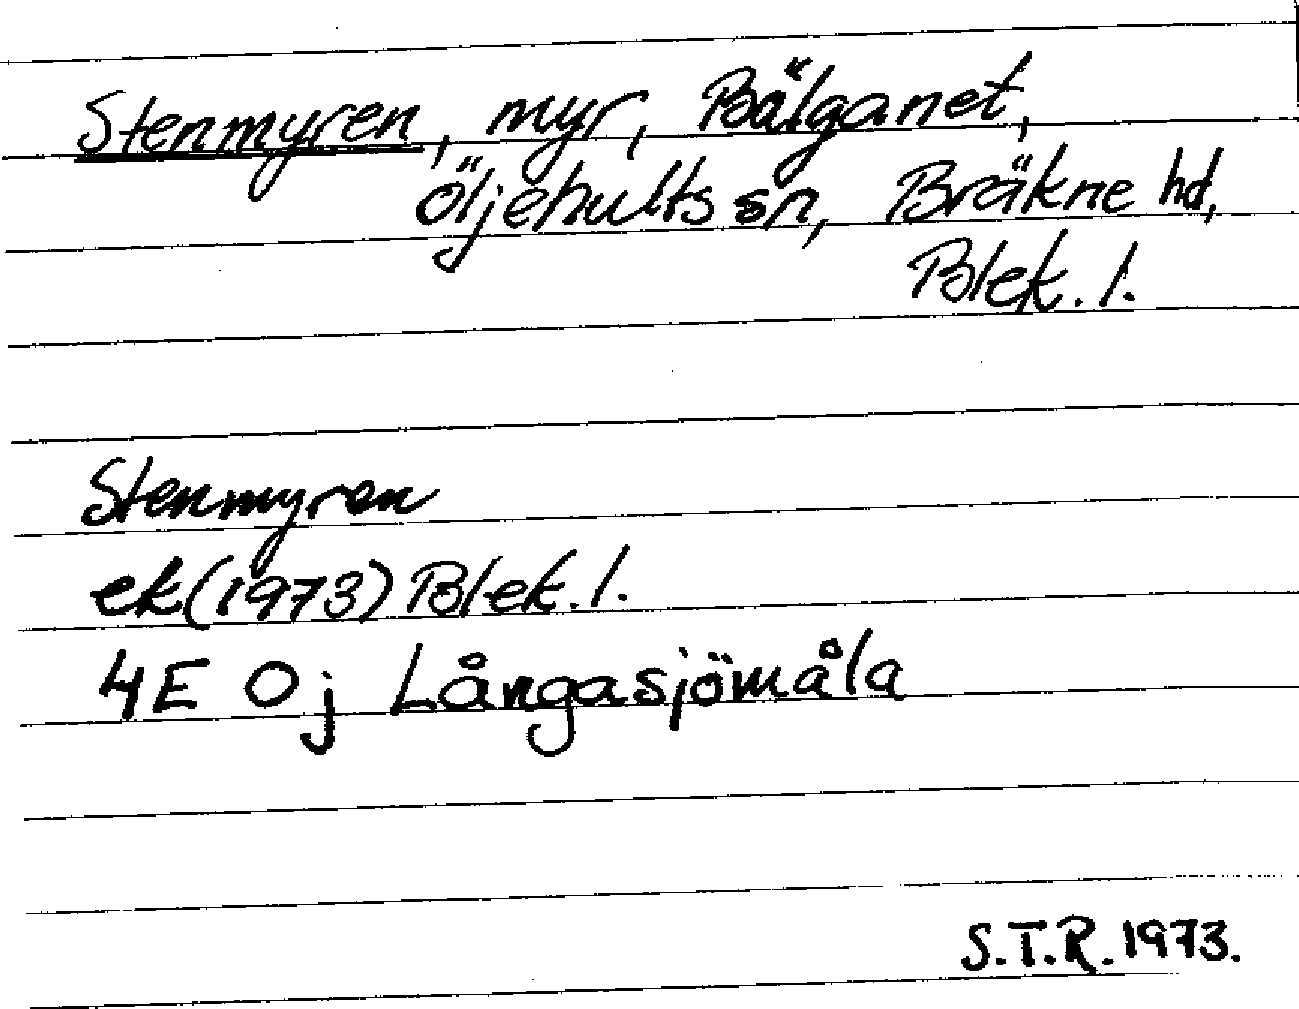 Stenmyren, myr, Bälganet,
Öljehults sn, Bräkne hd,
Blek. l.
Stenmyren
ek (1973) Blek. l.
4E 0j Långasjömåla
S.T.R. 1973.